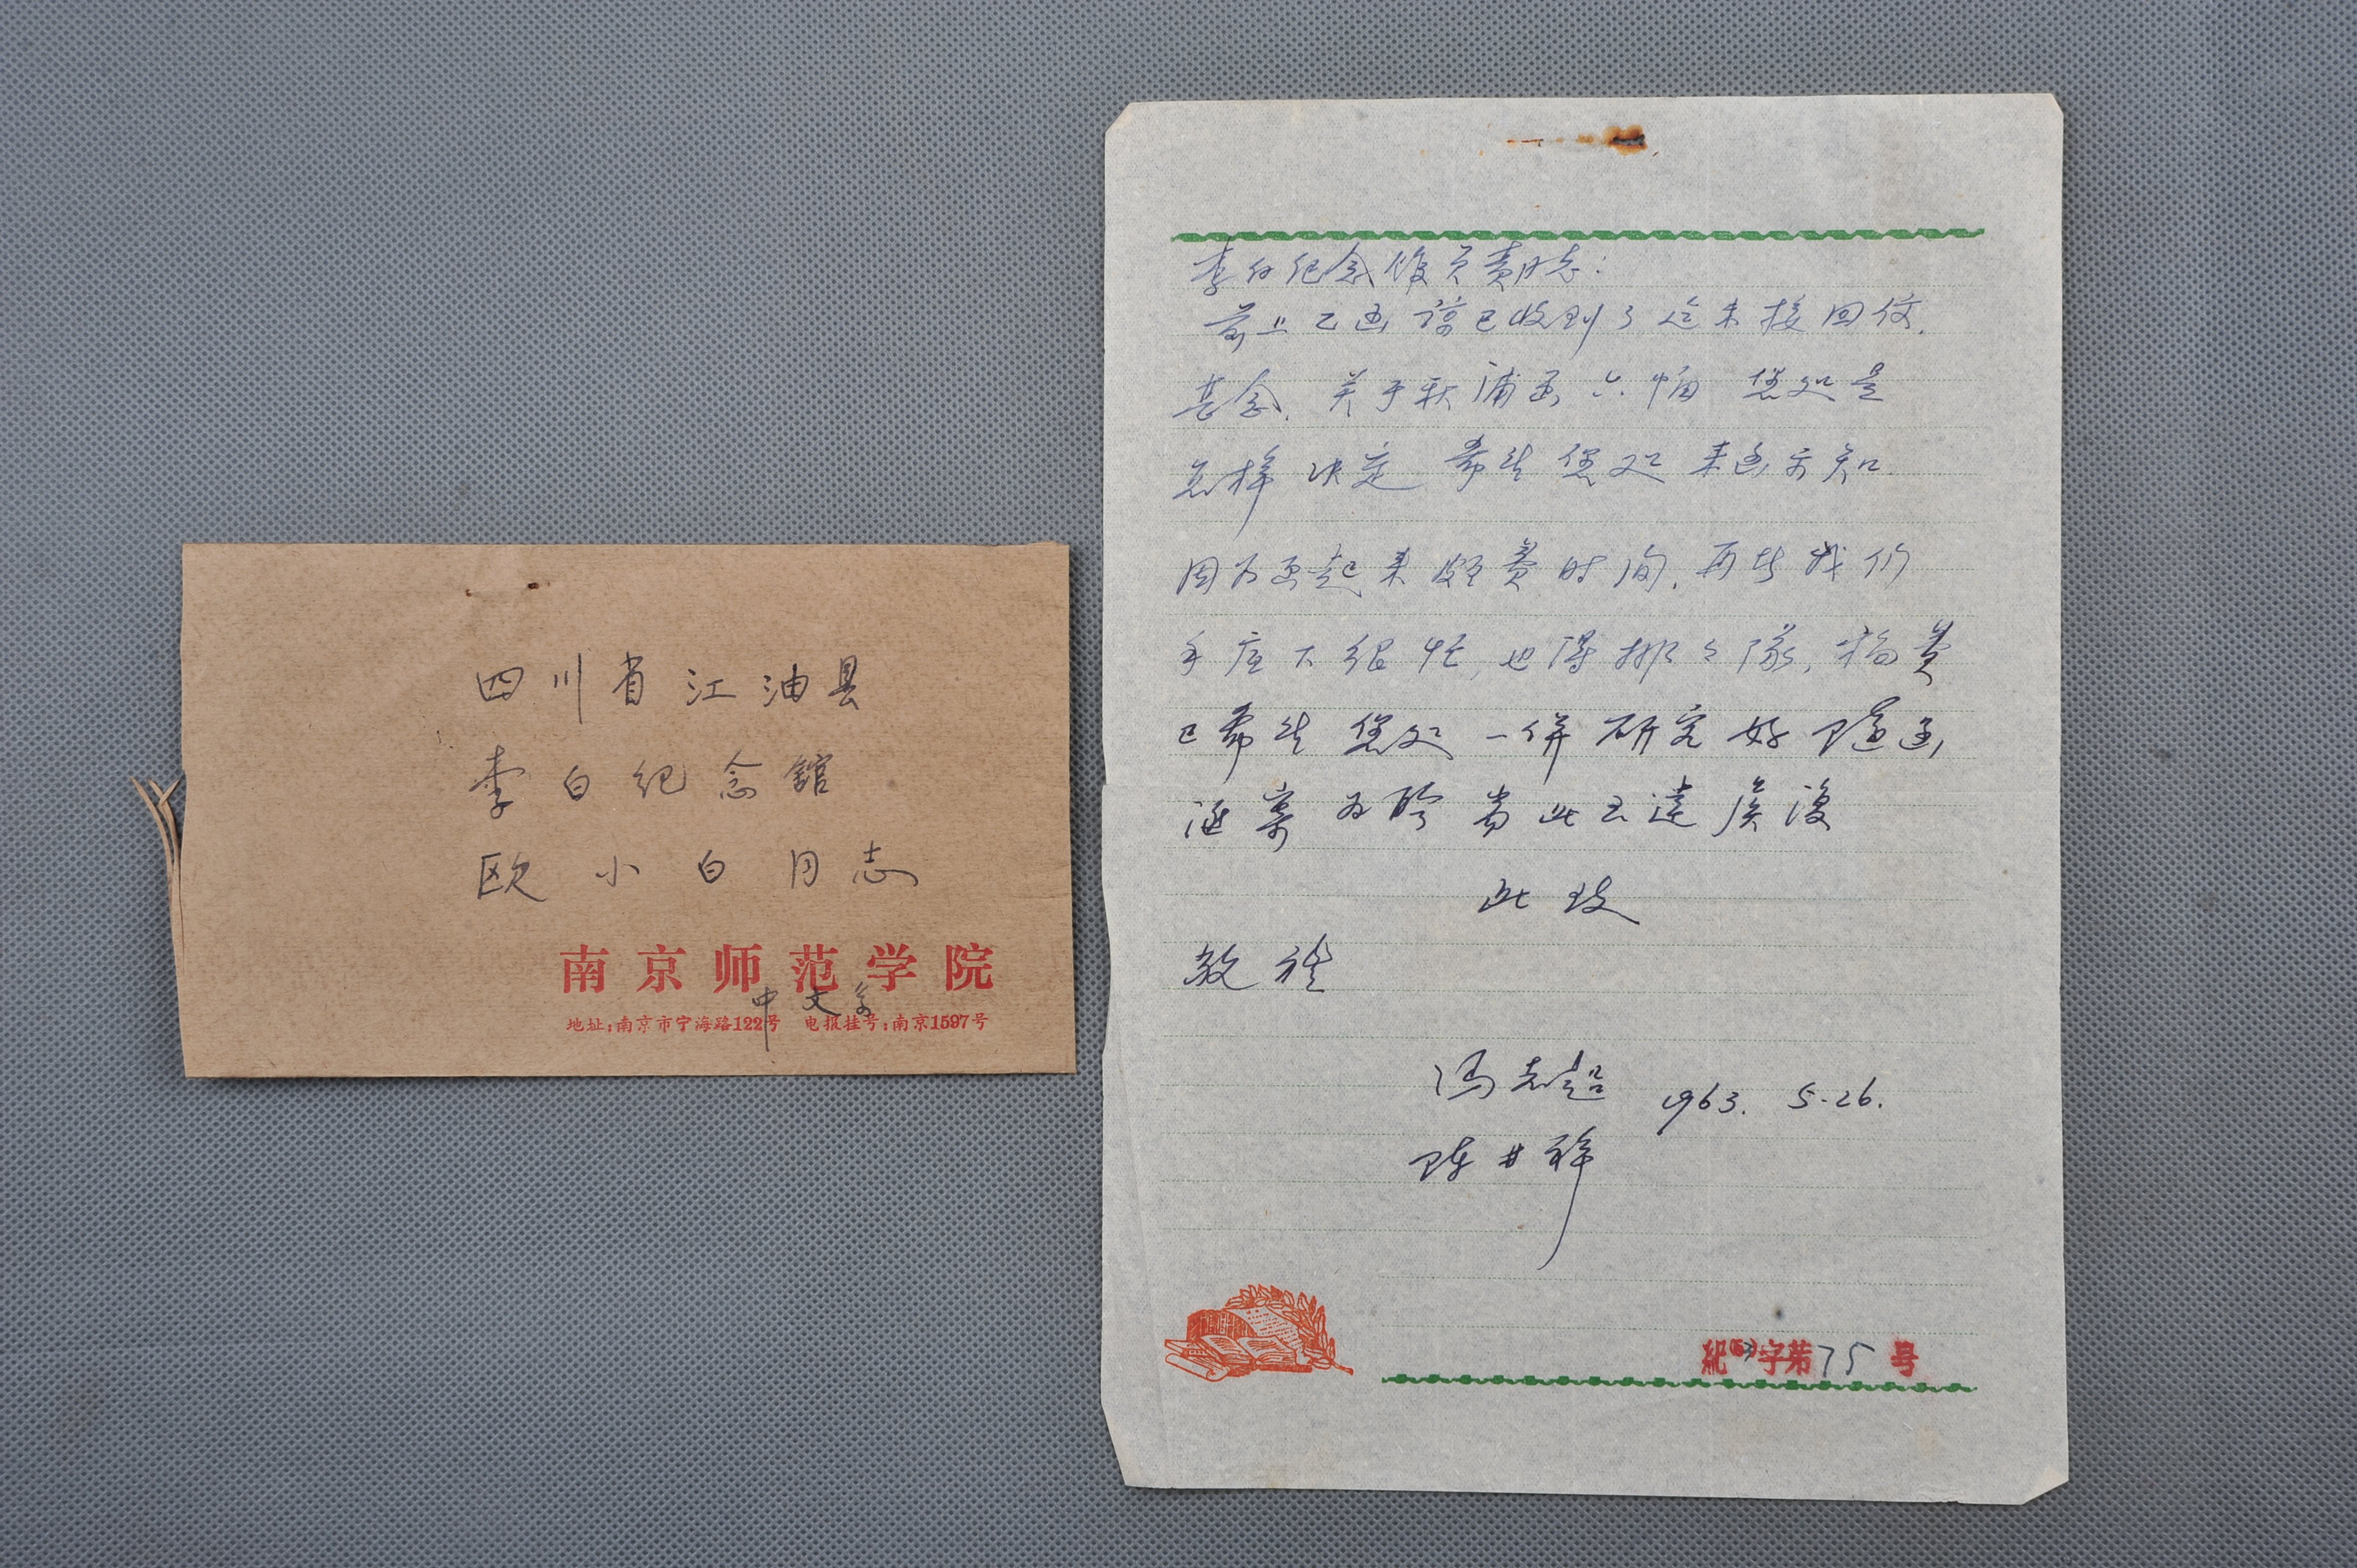 四川省江油县
李白纪念馆
欧小白同志
南京师范学院
中文系
地址:南京市宁海路122号 电报挂号:南京1597号
李白纪念馆负责同志:
前上乙函谅已收到了迄未接回信.
甚念.关于秋浦画六幅 您处是
怎样决定 希望您处来函示知.
因为画起来颇费时间.再者我们
手底下很忙,也得排々隊,稿费
已希望您处一併研究好随函
寄为盼 耑此 候復
此致
敬礼
冯志超 1963. 5.26.
陈井祥
紀(63)字第75号